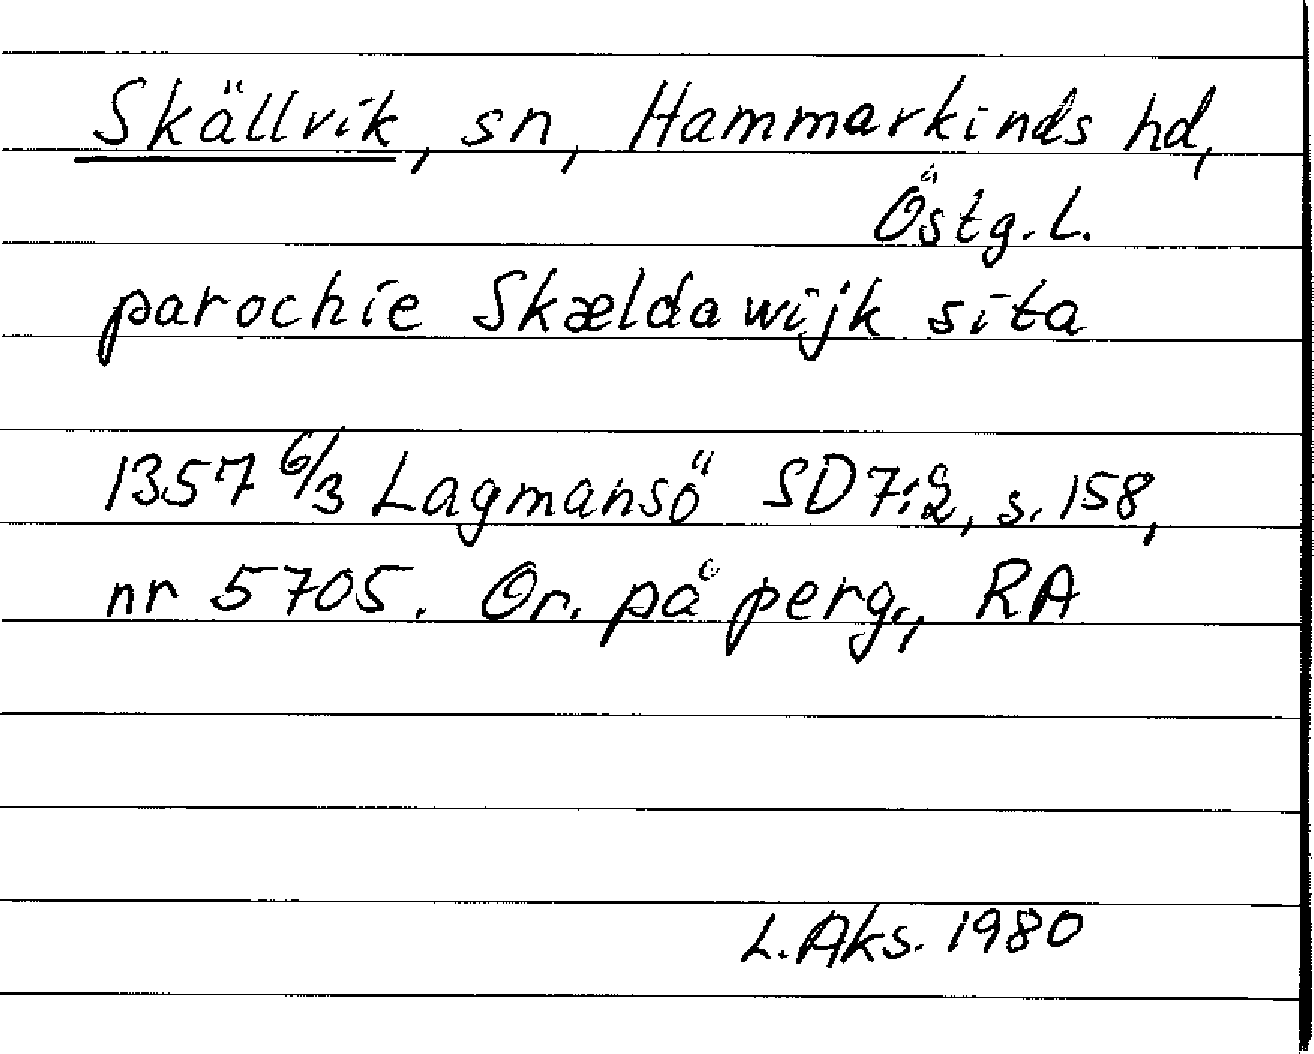 Skällvik, sn, Hammarkinds hd,
Östg. L.
parochie Skældawijk sita
1357 6/3 Lagmansö SD 7:2, s. 158,
nr 5705. Or. på perg., RA
L. Aks. 1980